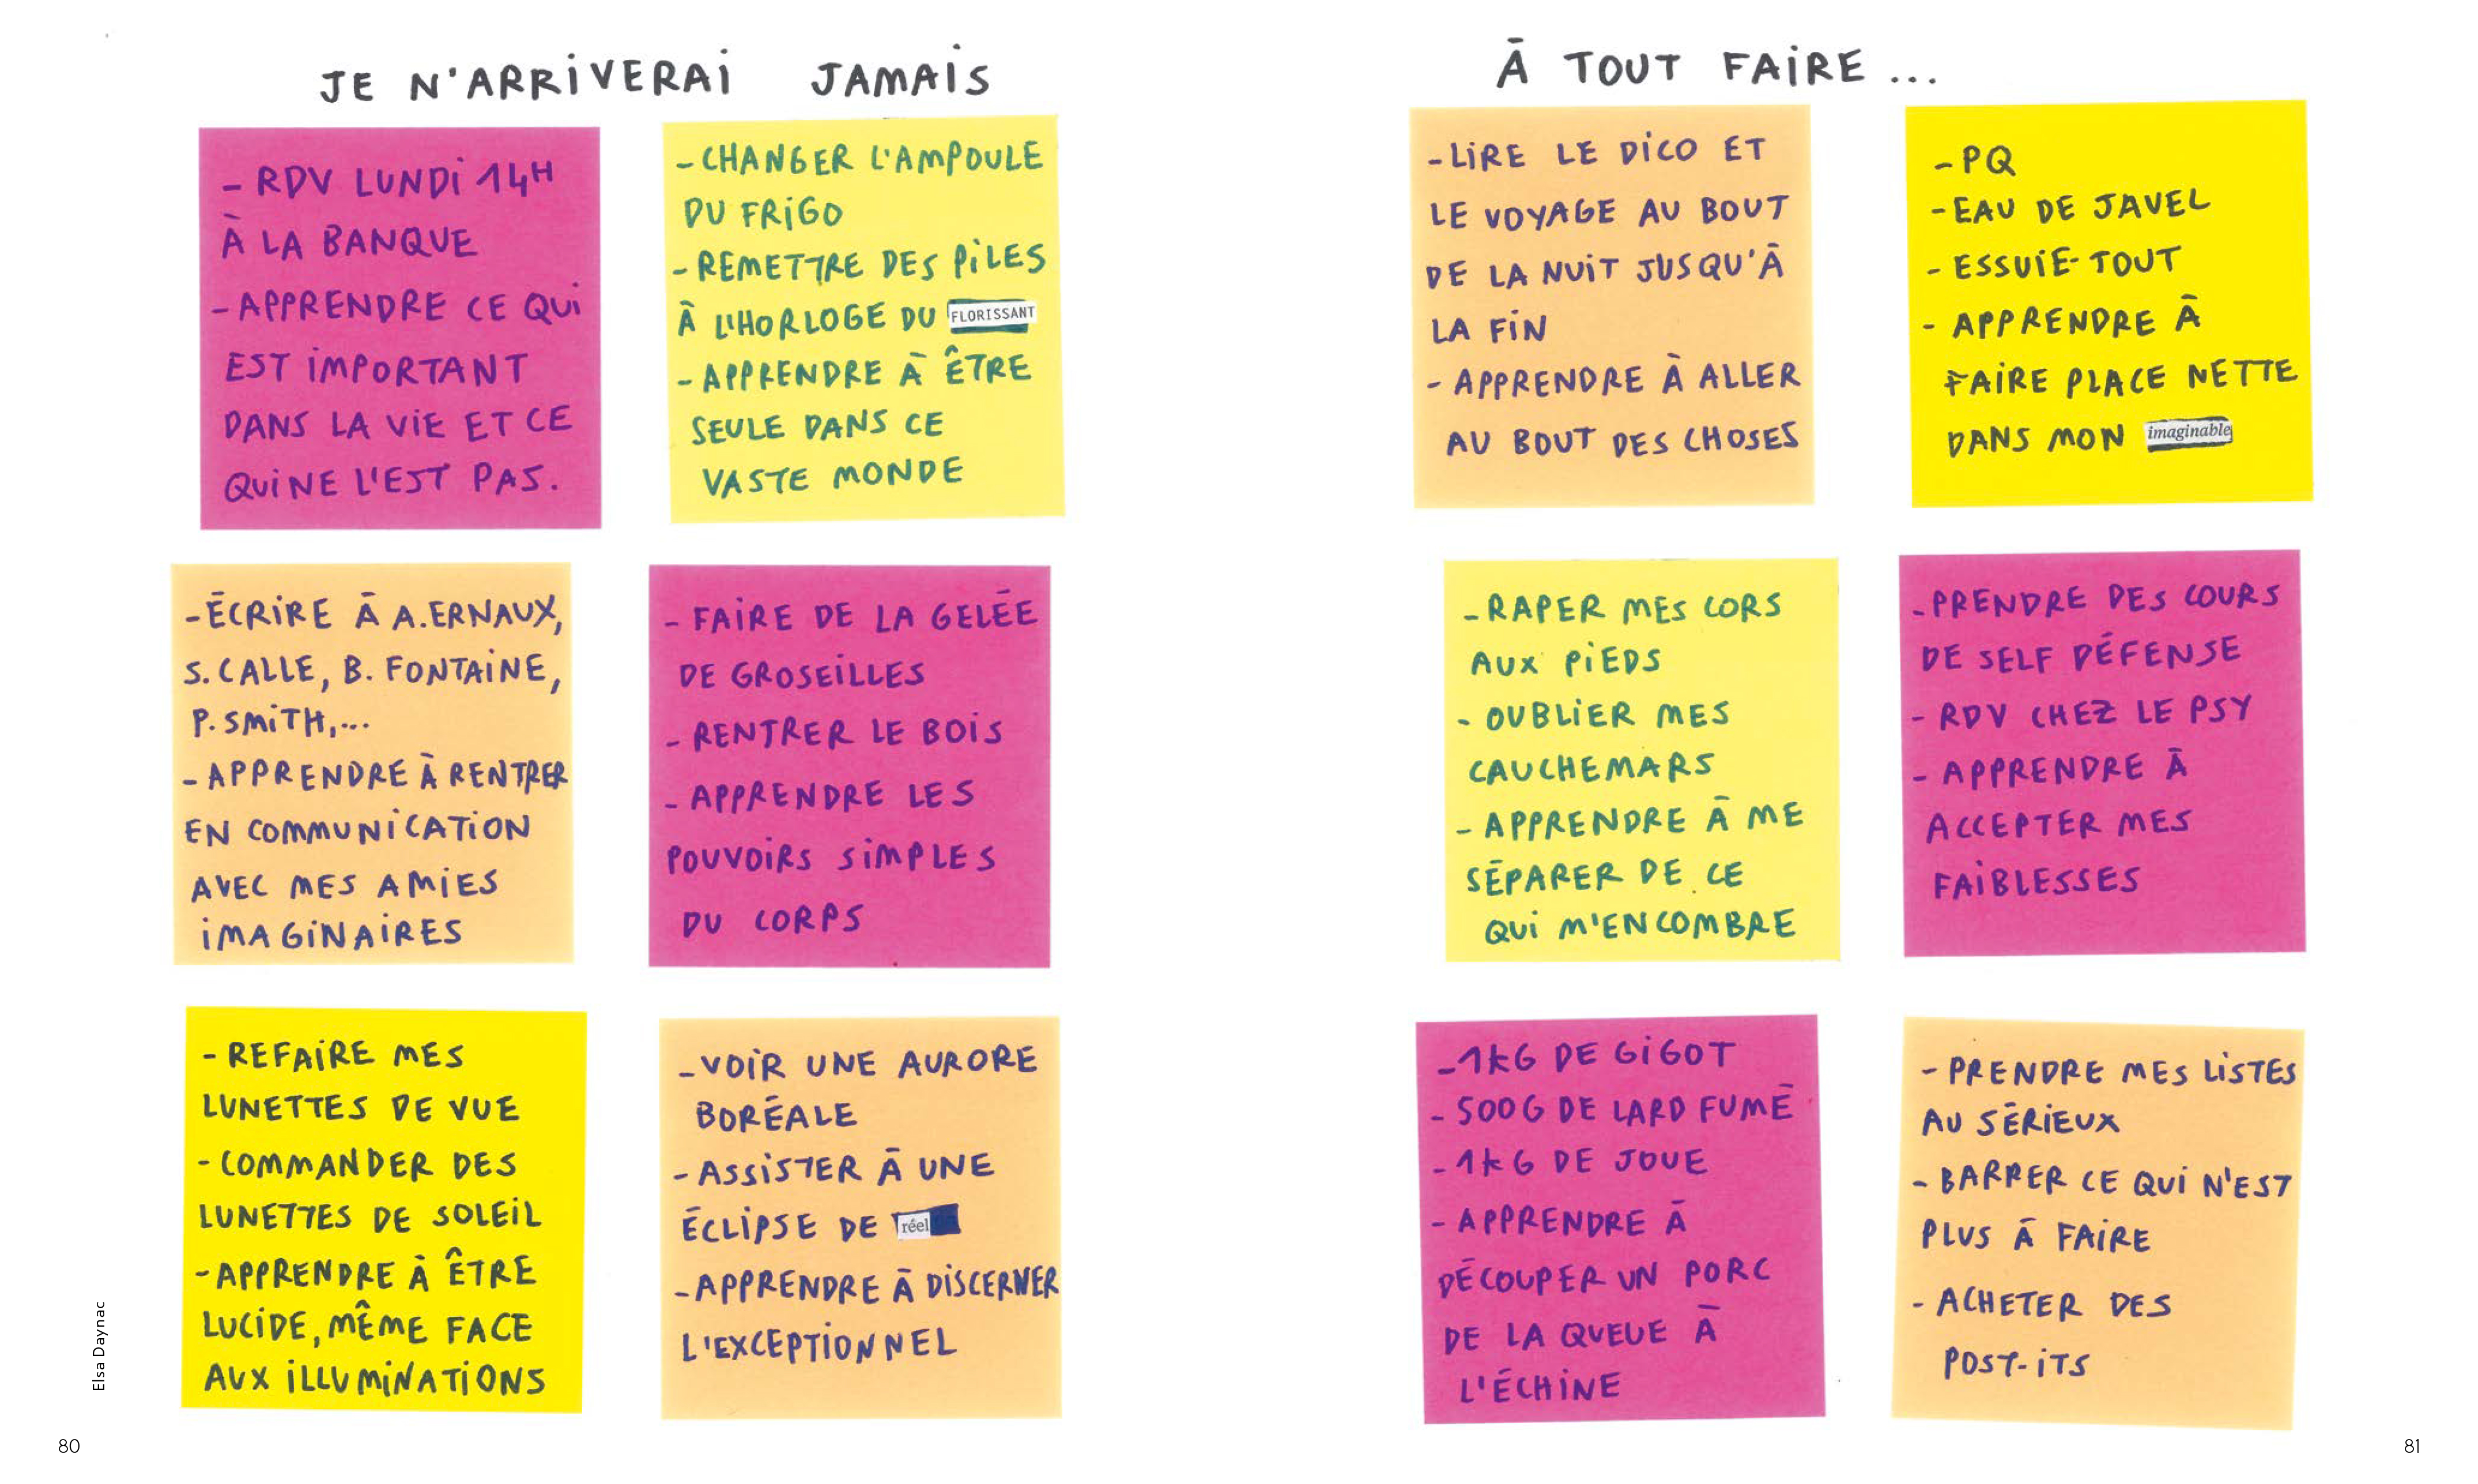 JE N'ARRIVERAI JAMAIS
- RDV LUNDI 14H
À LA BANQUE
- APPRENDRE CE QUI
EST IMPORTANT
DANS LA VIE ET CE
QUI NE L'EST PAS.
- CHANGER L'AMPOULE
DU FRIGO
- REMETTRE DES PILES
À L'HORLOGE DU FLORISSANT
- APPRENDRE À ÊTRE
SEULE DANS CE
VASTE MONDE
- ÉCRIRE À A. ERNAUX,
S. CALLE, B. FONTAINE,
P. SMITH,...
- APPRENDRE À RENTRER
EN COMMUNICATION
AVEC MES AMIES
IMAGINAIRES
- FAIRE DE LA GELÉE
DE GROSEILLES
- RENTRER LE BOIS
- APPRENDRE LES
POUVOIRS SIMPLES
DU CORPS
- REFAIRE MES
LUNETTES DE VUE
- COMMANDER DES
LUNETTES DE SOLEIL
- APPRENDRE À ÊTRE
LUCIDE, MÊME FACE
AUX ILLUMINATIONS
- VOIR UNE AURORE
BORÉALE
- ASSISTER À UNE
ÉCLIPSE DE réel
- APPRENDRE À DISCERNER
L'EXCEPTIONNEL
Elsa Daynac
80
À TOUT FAIRE ...
- LIRE LE DICO ET
LE VOYAGE AU BOUT
DE LA NUIT JUSQU'À
LA FIN
- APPRENDRE À ALLER
AU BOUT DES CHOSES
- PQ
- EAU DE JAVEL
- ESSUIE-TOUT
- APPRENDRE À
FAIRE PLACE NETTE
DANS MON imaginable
- RAPER MES CORS
AUX PIEDS
- OUBLIER MES
CAUCHEMARS
- APPRENDRE À ME
SÉPARER DE CE
QUI M'ENCOMBRE
- PRENDRE DES COURS
DE SELF DÉFENSE
- RDV CHEZ LE PSY
- APPRENDRE À
ACCEPTER MES
FAIBLESSES
- 1KG DE GIGOT
- 500G DE LARD FUMÉ
- 1KG DE JOUE
- APPRENDRE À
DÉCOUPER UN PORC
DE LA QUEUE À
L'ÉCHINE
- PRENDRE MES LISTES
AU SÉRIEUX
- BARRER CE QUI N'EST
PLUS À FAIRE
- ACHETER DES
POST-ITS
81